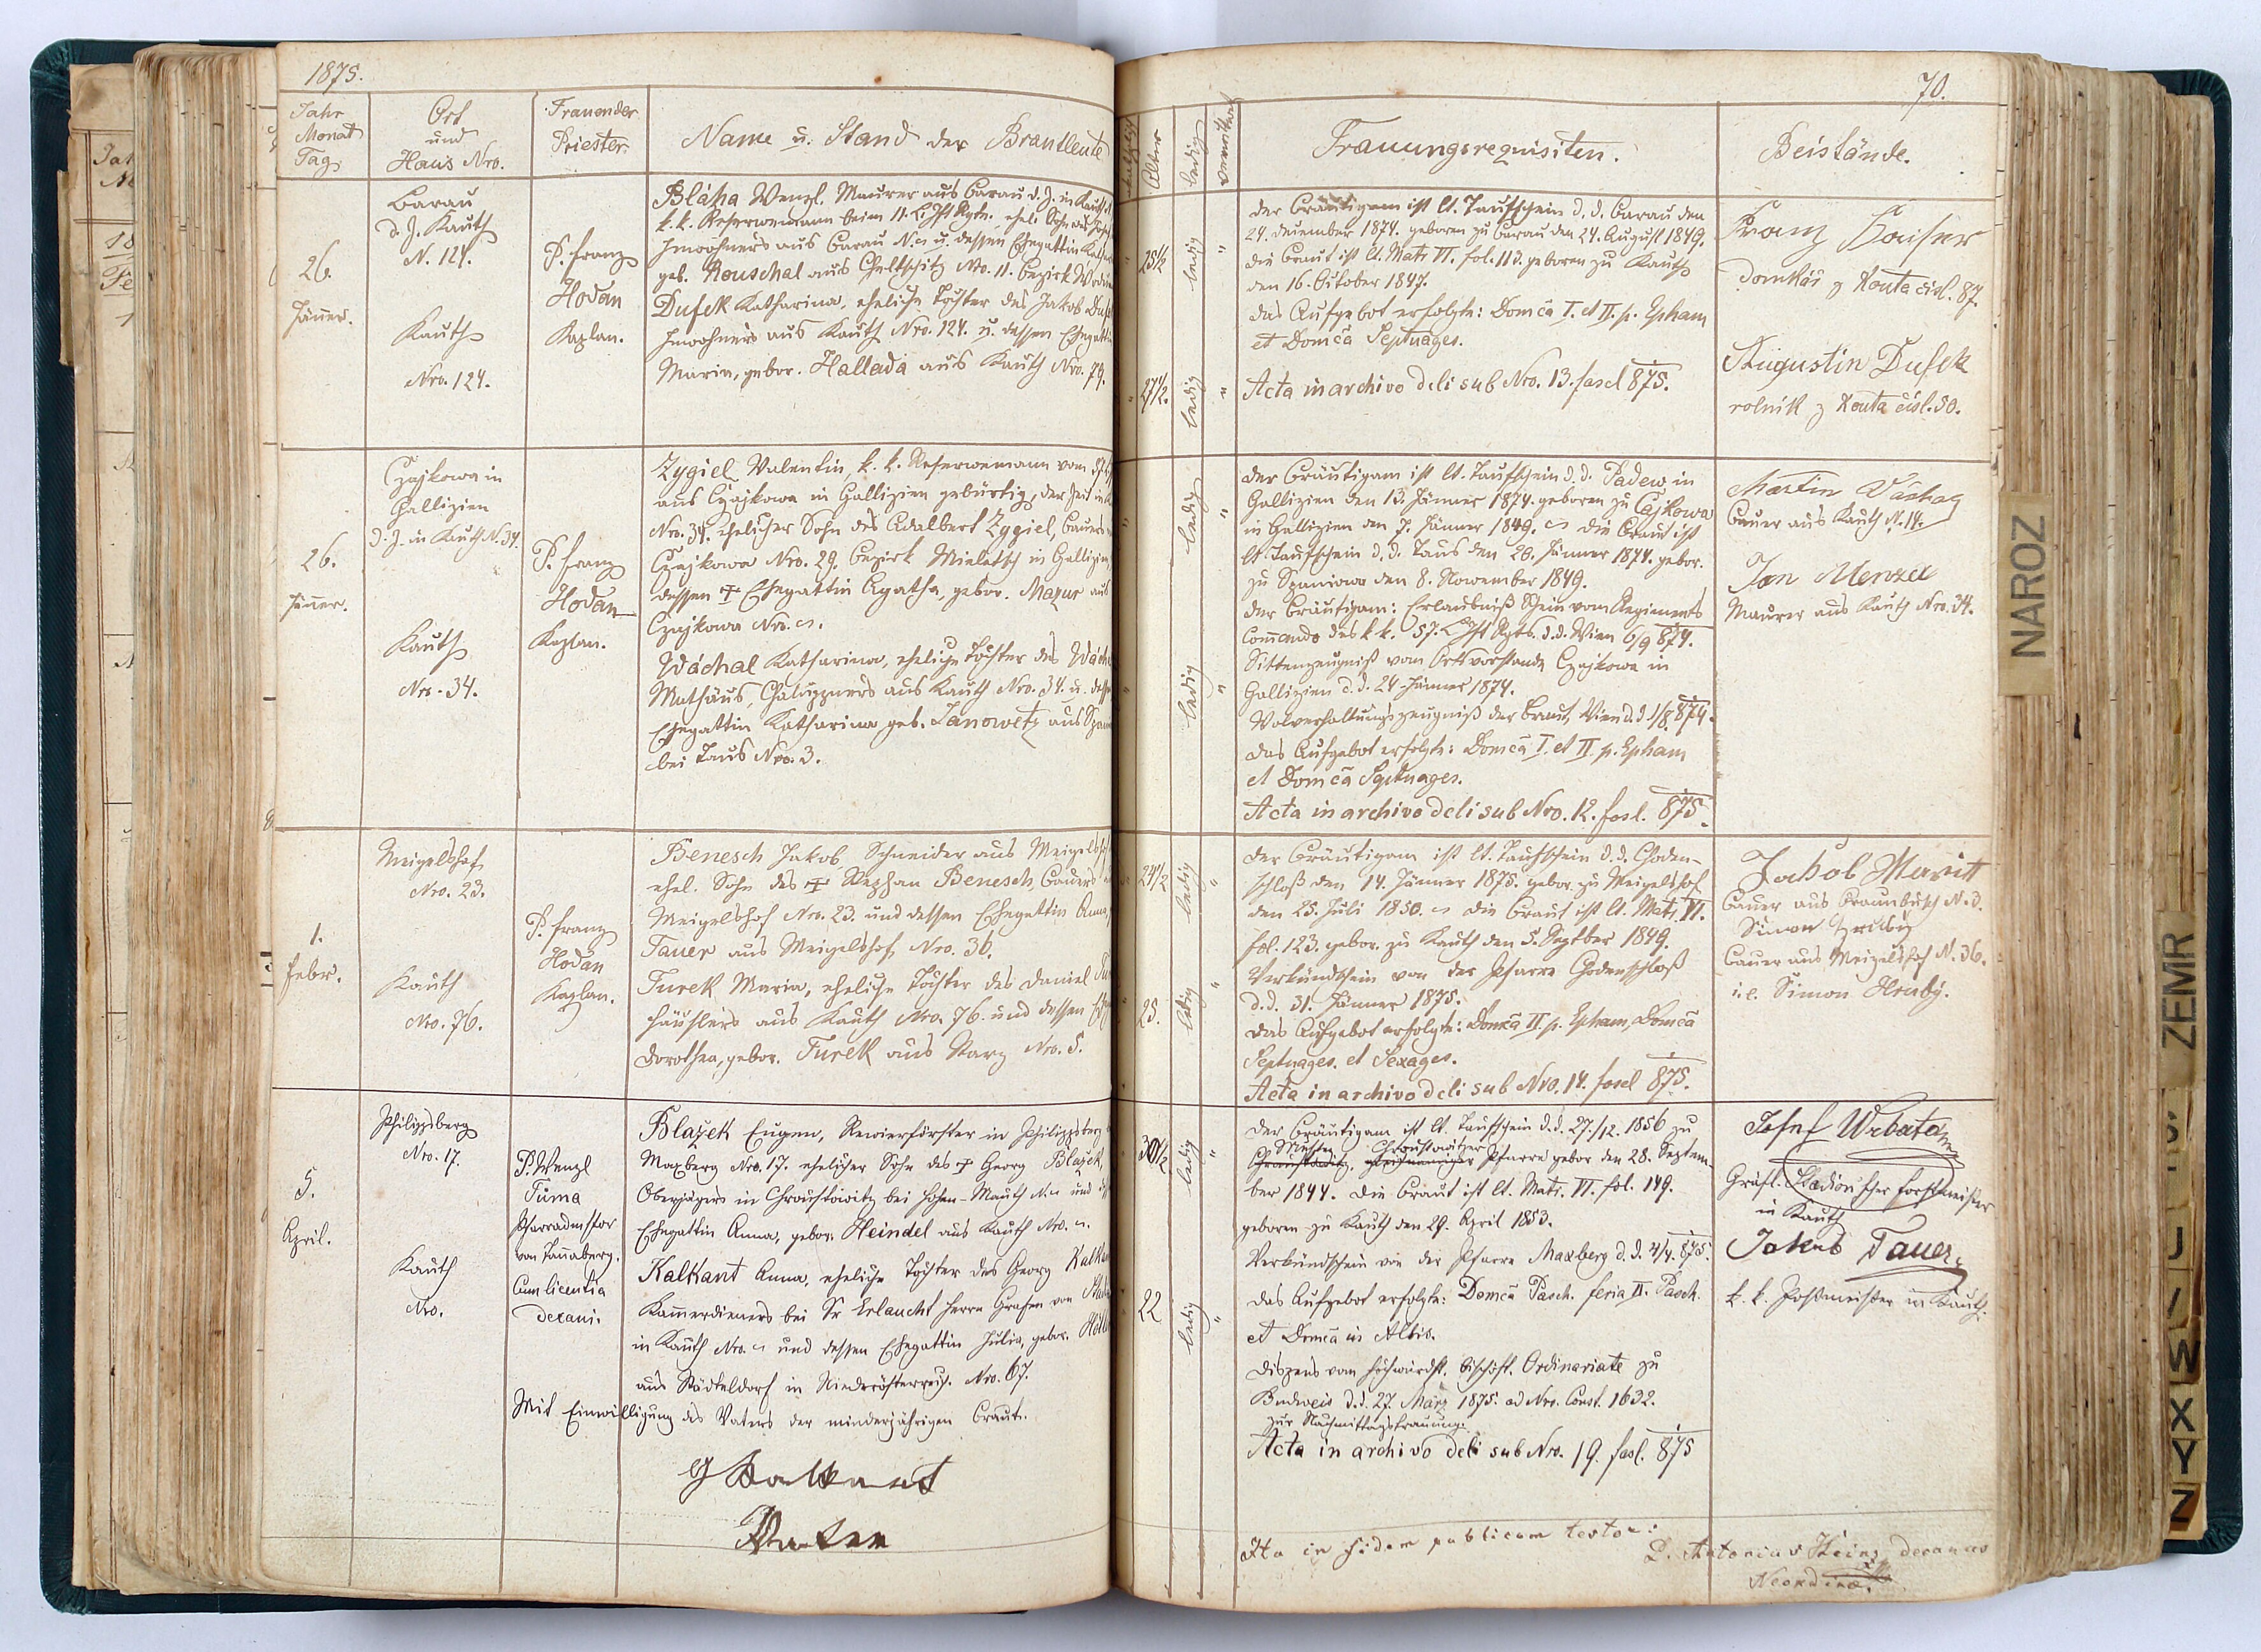 1875.
Jahr
Monat
Tag.
Ort
und
Haus Nro.
Trauender
Priester.
Name u. Stand der Brautleute
26.
Jänner.
Barau
d. Z. Kauth
N. 124.
Kauth
Nro. 124.
P. Franz
Hodan
Kaplan.
Bláha Wenzl, Maurer aus Barau d. Z. in Kauth
k. k. Reservemann beim 11. L. Inft Rgte., ehel. Sohn des
Inwohners aus Barau N. u. dessen Ehegattin
geb. Rouschal aus Cheltschitz Nro. 11. Bezirk
Dufek Katharina, eheliche Tochter des Jakob
Inwohners aus Kauth Nro. 124. u. dessen
Maria, gebor. Hallada aus Kauth Nro. 74.
26.
Jänner.
Czajkowa in
Gallizien
d. Z. in Kauth N. 34.
Kauth
Nro. 34.
P. Franz
Hodan
Kaplan.
Zygiel Valentin, k. k. Reservemann vom 57.
aus Czajkowa in Gallizien gebürtig, der Zeit in
Nro. 34. ehelicher Sohn des Adalbert Zygiel, Bauers
Czajkowa Nro. 29. Bezirk Mieletsch in Gallizien,
dessen † Ehegattin Agatha, gebor. Mazur aus
Czajkowa Nro.
Wáchal Katharina, eheliche Tochter des
Mathäus, Chaluppners aus Kauth Nro. 34. u.
Ehegattin Katharina geb. Janowetz aus
bei Taus Nro. 3.
1.
Febr.
Meigelshof
Nro. 23.
Kauth
Nro. 76.
P. Franz
Hodan
Kaplan.
Benesch Jakob, Schneider aus
ehel. Sohn des † Stephan Benesch, Bauers
Meigelshof Nro. 23. und dessen Ehegattin Anna,
Tauer aus Meigelshof Nro. 36.
Turek Maria, eheliche Tochter des Daniel
Häuslers aus Kauth Nro. 76. und dessen
Dorothea, gebor. Turek aus Starz Nro. 5.
5.
April.
Philippsberg
Nro. 17.
Kauth
Nro.
P. Wenzl
Tůma
Pfarradmstor
von Tannaberg.
Cum licentia
decani.
Blažek Eugen, Revierförster in Philippsberg
Maxberg Nro. 17. ehelicher Sohn des † Georg Blažek,
Oberjägers in Chroustowitz bei Hohen-Mauth N. und
Ehegattin Anna, gebor. Heindel aus Kauth Nro.
Kalkant Anna, eheliche Tochter des Georg
Kammerdieners bei Sr Erlaucht Herrn Grafen von
in Kauth Nro. und dessen Ehegattin Julia, gebor.
aus Städteldorf in Niederösterreich Nro. 67.
Mit Einwilligung des Vaters der minderjährigen Braut.
G Kalkant
Vater
70.
Alter
ledig
verwitwet
Trauungsrequisiten.
Beistände.
25½
ledig
"
27½.
ledig
"
Der Bräutigam ist lt. Taufschein d. d. Barau den
24. Dezember 1874. geboren zu Barau den 24. August 1849.
Die Braut ist lt. Matr. VI. fol. 113. geboren zu Kauth
den 16. Oktober 1847.
Das Aufgebot erfolgte: Domcā I. et II. p. Epham
et Domcā Septuages.
Acta in archivo dcli sub Nro. 13. fascl 875.
Franz
domkář z Kouta čisl. 87.
Augustin Dufek
rolník z Kouta čisl. 50.
ledig
"
ledig
"
Der Bräutigam ist lt. Taufschein d. d. Padew in
Gallizien den 13. Jänner 1874. geboren zu Cajkowa
in Gallizien den 7. Jänner 1849. Die Braut ist
lt. Taufschein d. d. Taus den 26. Jänner 1874. gebor.
zu Spaniowa den 8. November 1849.
Der Bräutigam: Erlaubniß Schein vom Regiments
Commando des k. k. 57. L. Inft Rgts. d. d. Wien 6/9 874.
Sittenzeugniß vom Ortsvorstande Czajkowa in
Gallizien d. d. 24. Jänner 1874.
Wolverhaltungszeugniß der Braut, Wien d. d. 1/8 874.
Das Aufgebot erfolgte: Domcā I. et II. p. Epham
et Domcā Septuages.
Acta in archivo dcli sub Nro. 12. fasl. 875.
Martin Váchal
Bauer aus Kauth N. 14.
Jan Menzel
Maurer aus Kauth Nro. 34.
24½
ledig
"
25.
ledig
"
Der Bräutigam ist lt. Taufschein d. d. Choden-
schloß den 14. Jänner 1875. gebor. zu Meigelshof
den 25. Juli 1850. Die Braut ist lt. Matr. VI.
fol. 123. gebor. zu Kauth den 5. Septber 1849.
Verkündschein von der Pfarre Chodenschloß
d. d. 31. Jänner 1875.
Das Aufgebot erfolgte: Domcā II. p. Epham, Domcā
Septuages. et Sexages.
Acta in archivo dcli sub Nro. 14. fascl 875.
Jakob
Bauer aus Braunbusch N. 3.
Simon Hruby
Bauer aus Meigelshof N. 36.
i. e. Simon Hruby.
30½
ledig
"
22
ledig
"
Der Bräutigam ist lt. Taufschein d. d. 27./12. 1856 zu
Chroustowitzer
Pfarre gebor den 28. Septem-
ber 1844. Die Braut ist lt. Matr. VI. fol. 149.
geboren zu Kauth den 29. April 1853.
Verkündschein von der Pfarre Maxberg d. d. 4/4. 875.
Das Aufgebot erfolgte: Domcā Pasch. feria II. Pasch.
et Domcā in Albis.
Dispens vom hochwürdst. bischöfl. Ordinariate zu
Budweis d. d. 27. März 1875. ad Nro. Const. 1632.
zur Nachmittagstrauung.
Acta in archivo dcli sub Nro. 19. fasl. 875
Josef Wrbata
Gräfl. Stadion'scher Forstmeister
in Kauth
Jakob Tauer
k. k. Postmeister in Kauth.
Ita in fidem publicam testor:
P. Antonius Heinz decanus
Neordinē.
NAROZ
ZEMR
J
W
X
Y
Z